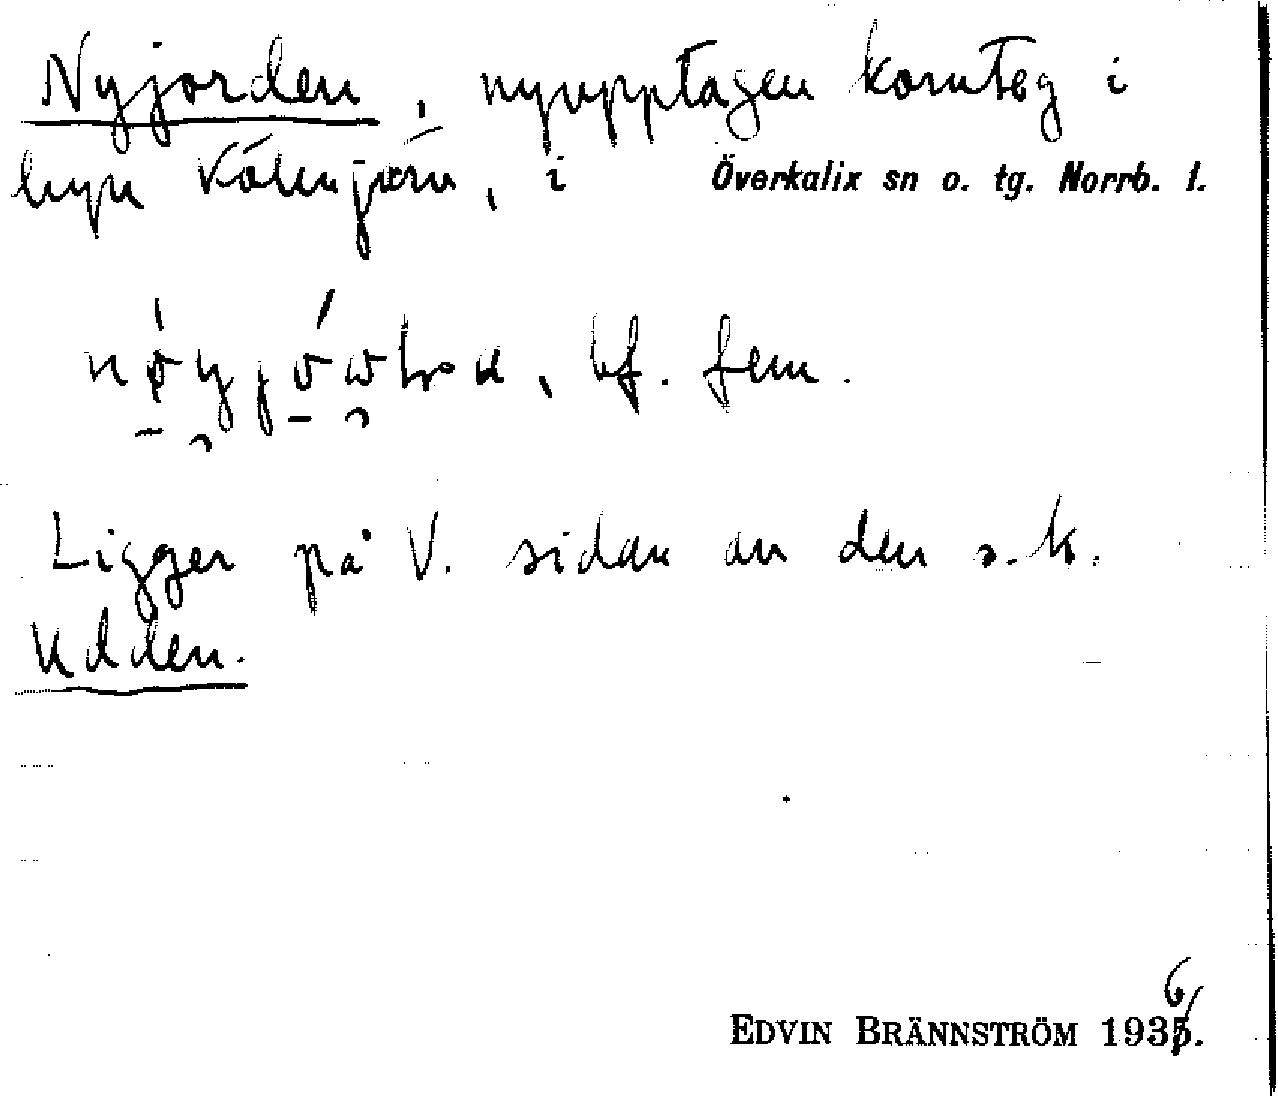 Nyjorden, nyupptagen kornteg i
byn Välinjärv, i Överkalix sn o. tg. Norrb. l.
bf. fem.
Ligger på V. sidan av den s.k.
Udden.
EDVIN BRÄNNSTRÖM 1936.